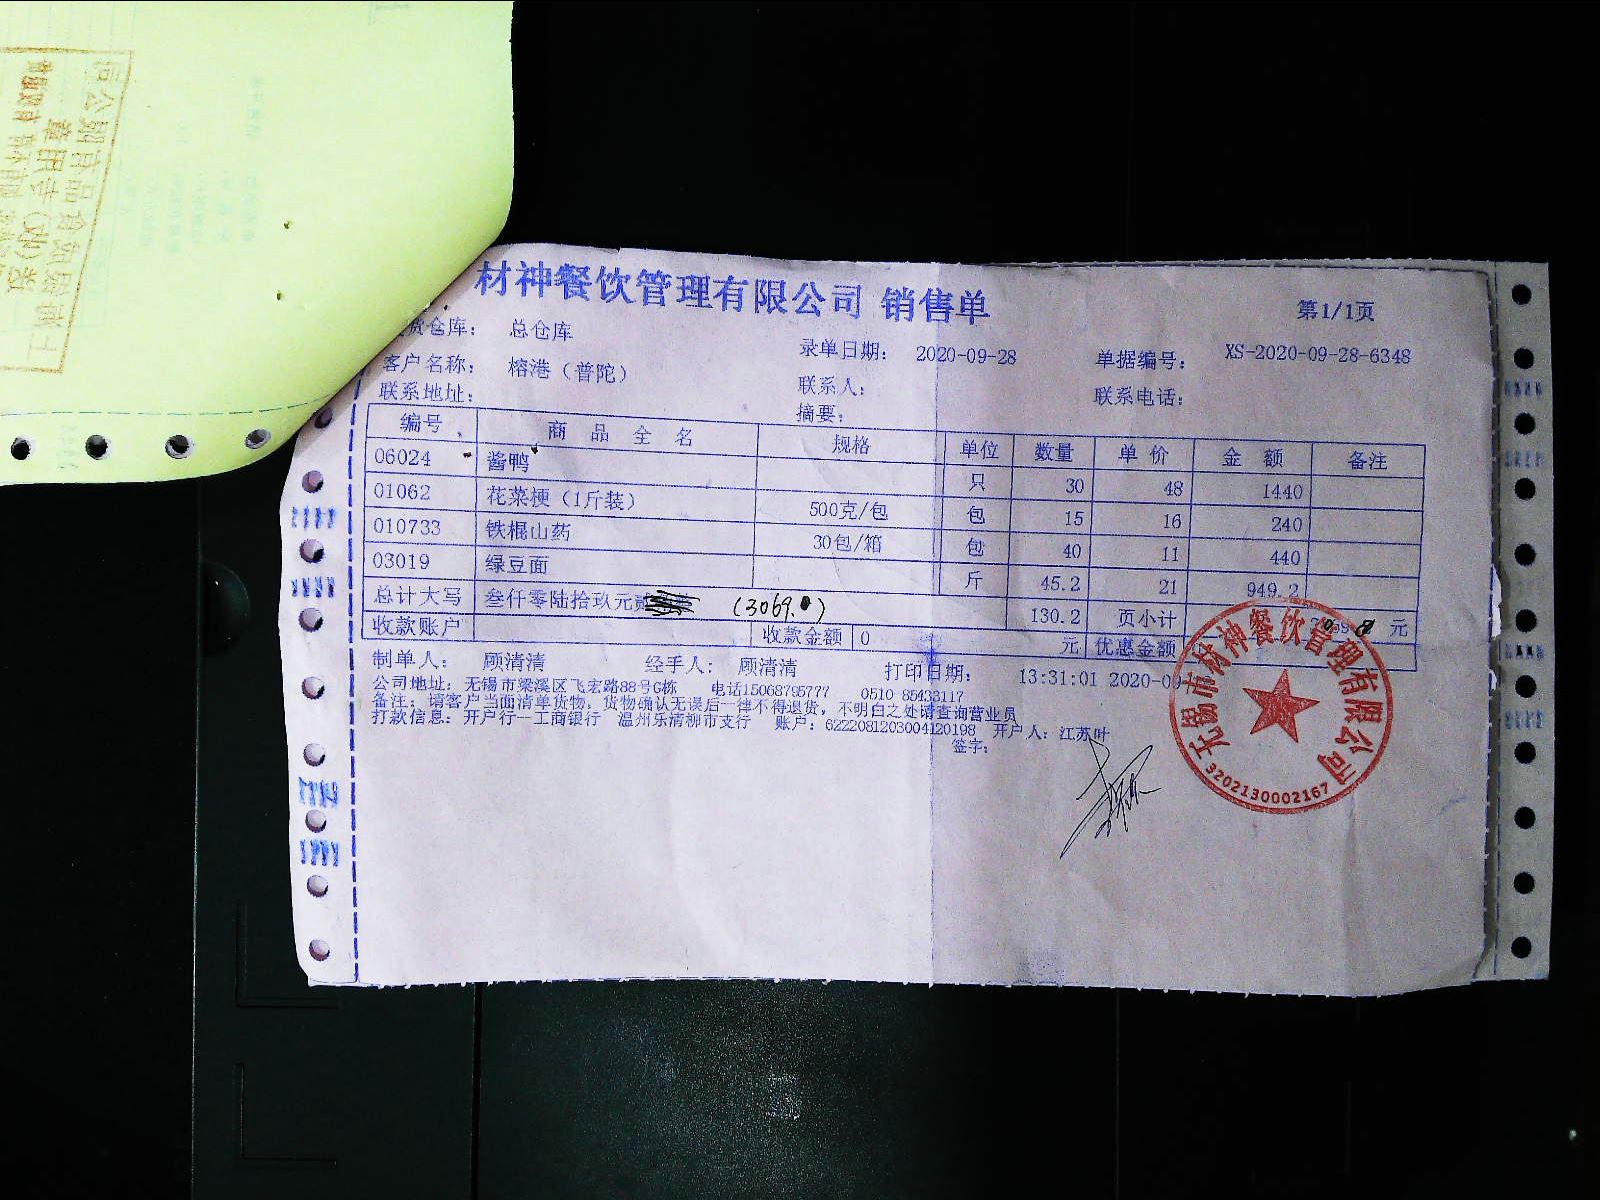 材神餐饮管理有限公司 销售单
第1/1页
货仓库： 总仓库
录单日期： 2020-09-28
单据编号： XS-2020-09-28-6348
客户名称： 榕港（普陀）
联系人：
联系电话：
联系地址：
摘要：
编号 商 品 全 名 规格 单位 数量 单 价 金 额 备注
06024 酱鸭 只 30 48 1440
01062 花菜梗（1斤装） 500克/包 包 15 16 240
010733 铁棍山药 30包/箱 包 40 11 440
03019 绿豆面 斤 45.2 21 949.2
总计大写 叁仟零陆拾玖元 (3069.) 130.2 页小计 元
收款账户 收款金额 0 元 优惠金额
制单人： 顾清清 经手人： 顾清清 打印日期： 13:31:01 2020-09
公司地址：无锡市梁溪区飞宏路88号G栋 电话15068795777 0510 85433117
备注：请客户当面清单货物，货物确认无误后一律不得退货，不明白之处请查询营业员
打款信息：开户行--工商银行 温州乐清柳市支行 账户：6222081203004120198 开户人：江苏叶
签字：
无锡市材神餐饮管理有限公司
3202130002167